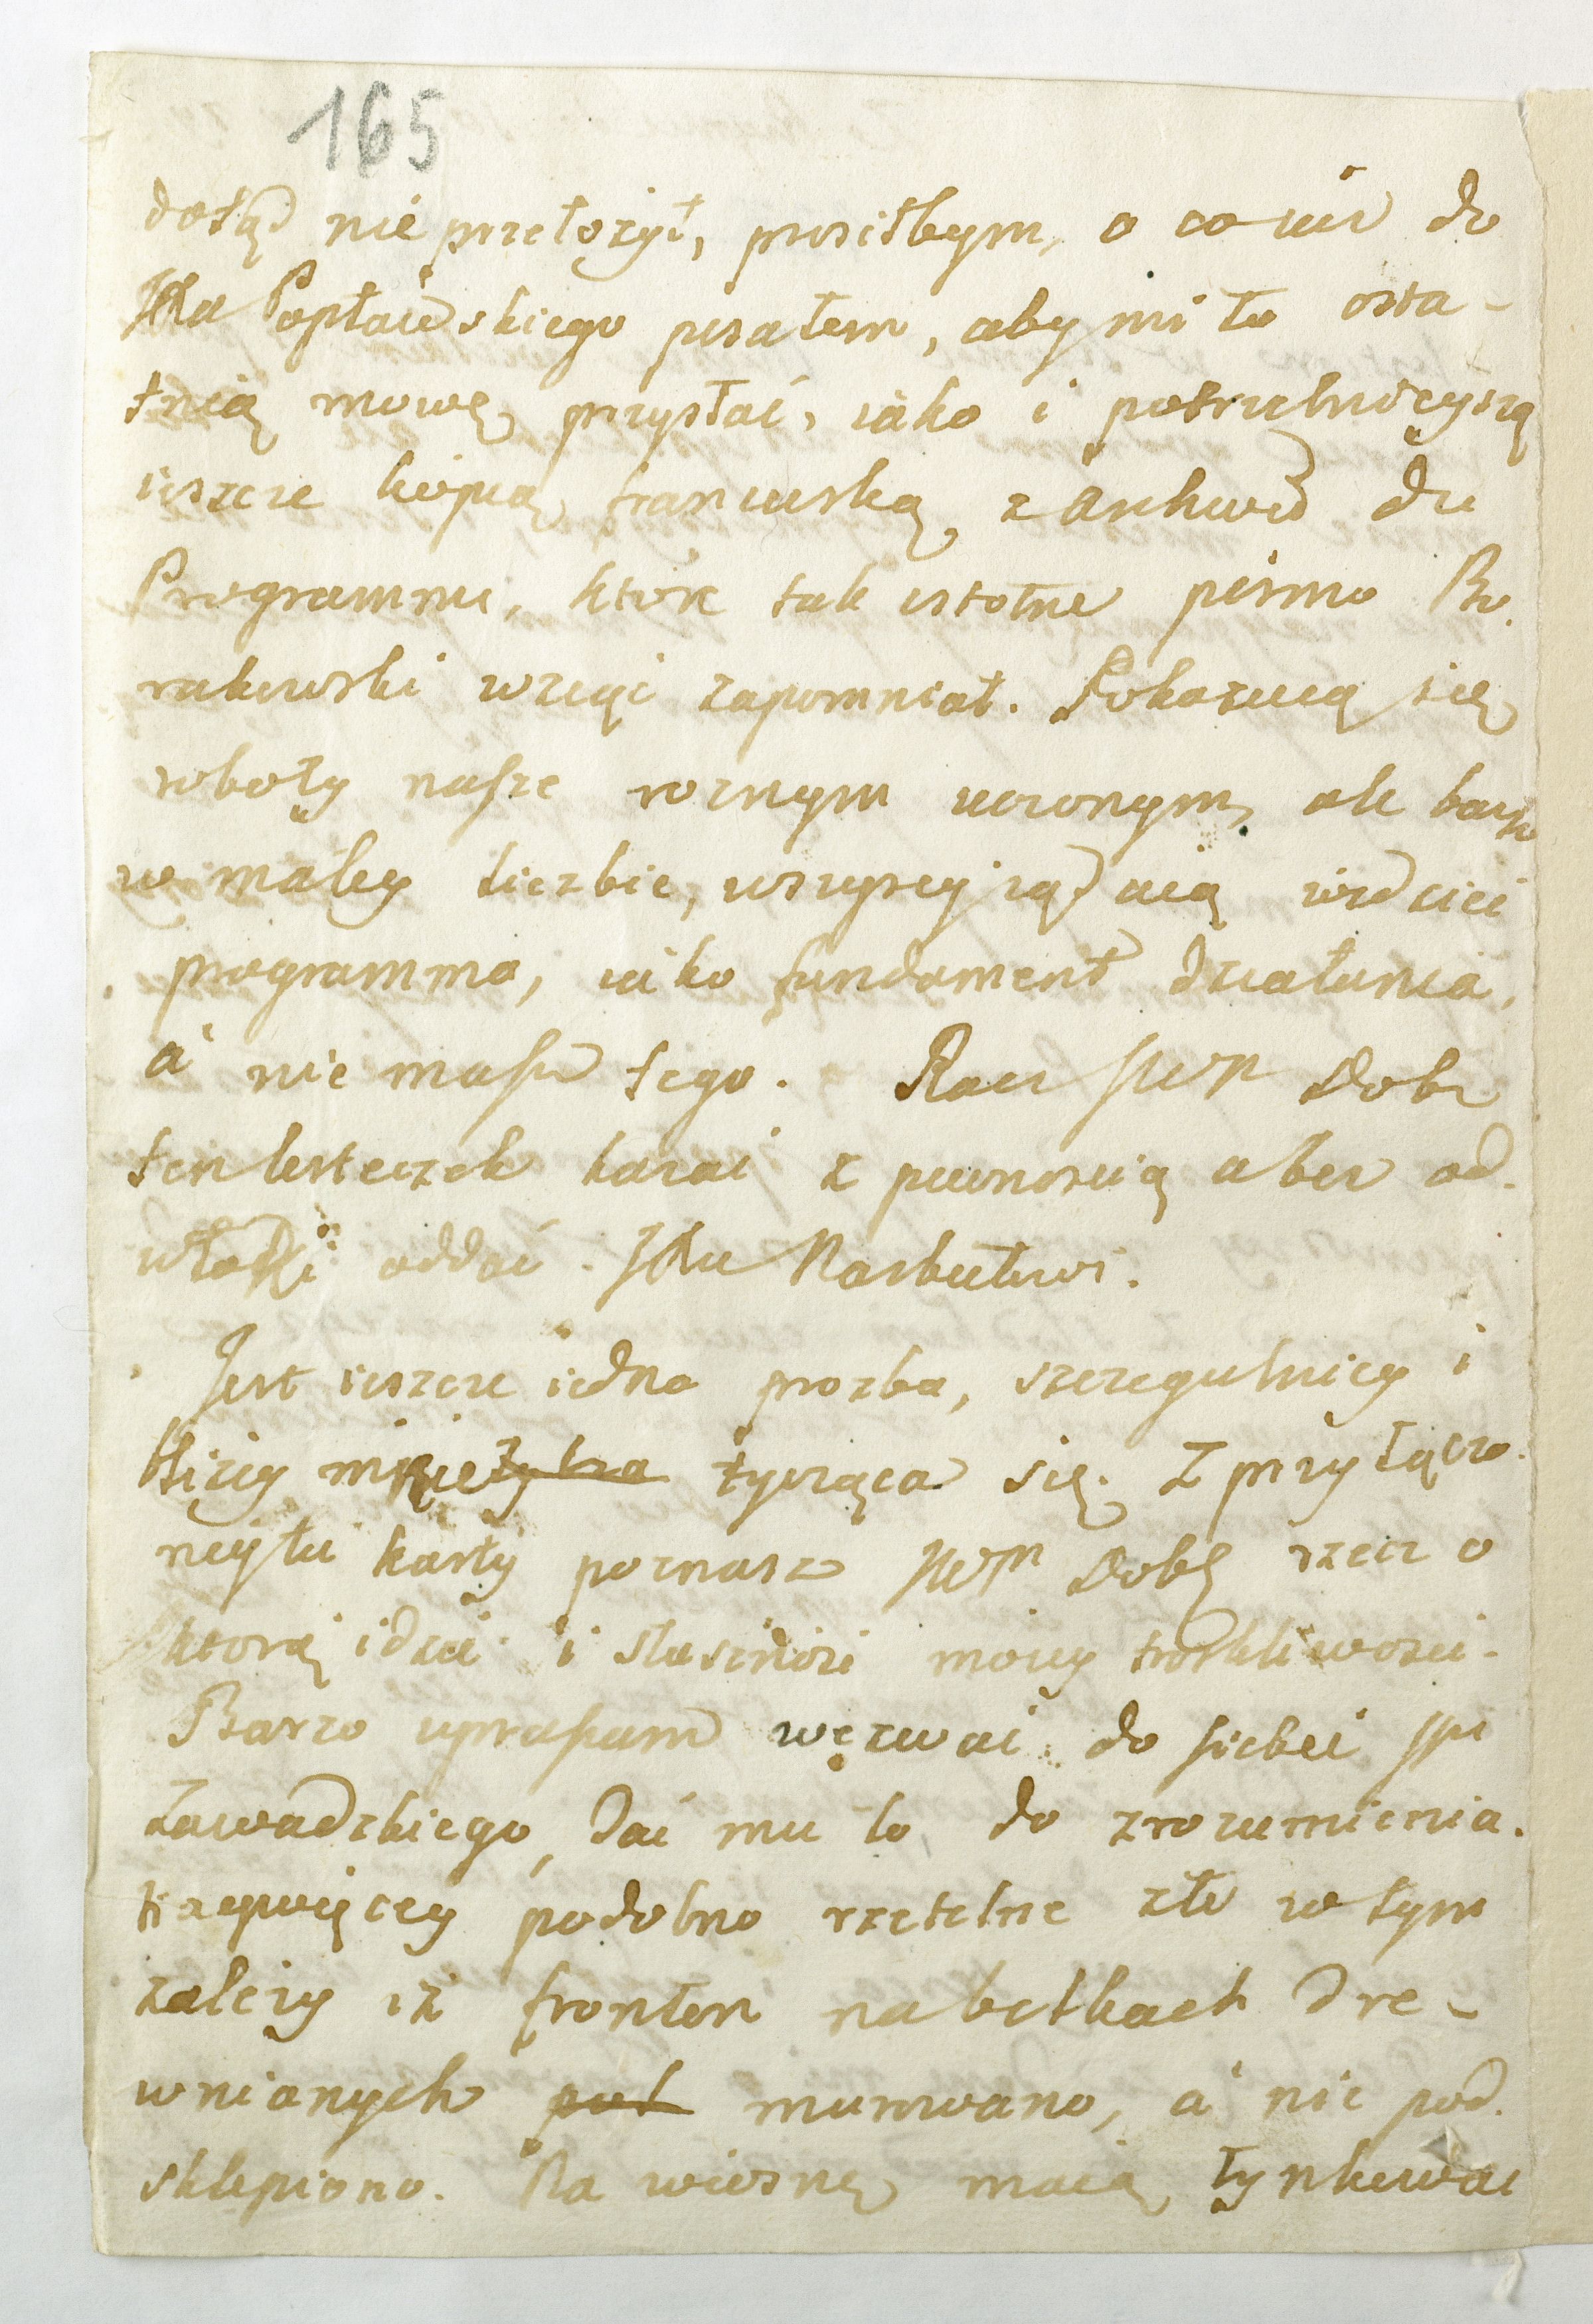 165
dotąd nie przełożył, prosiłbym, o co iuż do
JXa Popławskiego pisałem, aby mi tę osta-
tnią mowę przysłać, iako i potrzebnieyszą
ieszcze kopią francuską z Arkuszu du
Programme, które tak istotne pismo Bu.
rakowski wziąć zapomniał. Pokazuią się
roboty nasze roznym uczonym, ale barzo
w małey liczbie, wszyscy żądaią widzieć
programma, iako fundament działania,
a nie masz tego. Racz JWP Dobr
ten listeczek kazać z pewnością a bez od.
włoki oddać JXu Narbutowi.
Jest ieszcze iedna prozba, szczegulniey i
bliżey mię tycząca się. Z przyłączo.
neytu karty poznasz JWP Dobr rzecz o
ktorą idzie i słuszność moiey troskliwosci.
Barzo upraszam wezwać do siebie JP
Zawadzkiego, dać mu to do zrozumienia.
Naywięcey podobno rzetelne złe w tym
zależy iż fronton na belkach dre-
wnianych murowano, a nie pod.
sklepiono. Na wiosnę maią tynkować